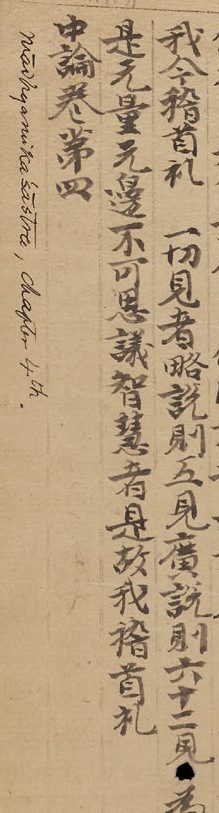 我今稽首礼 一切見者略說則五見廣說則六十二見
是无量无邊不可思議智慧者是故我稽首礼
中論卷第四
mādhyamika śāstra, chapter 4th.